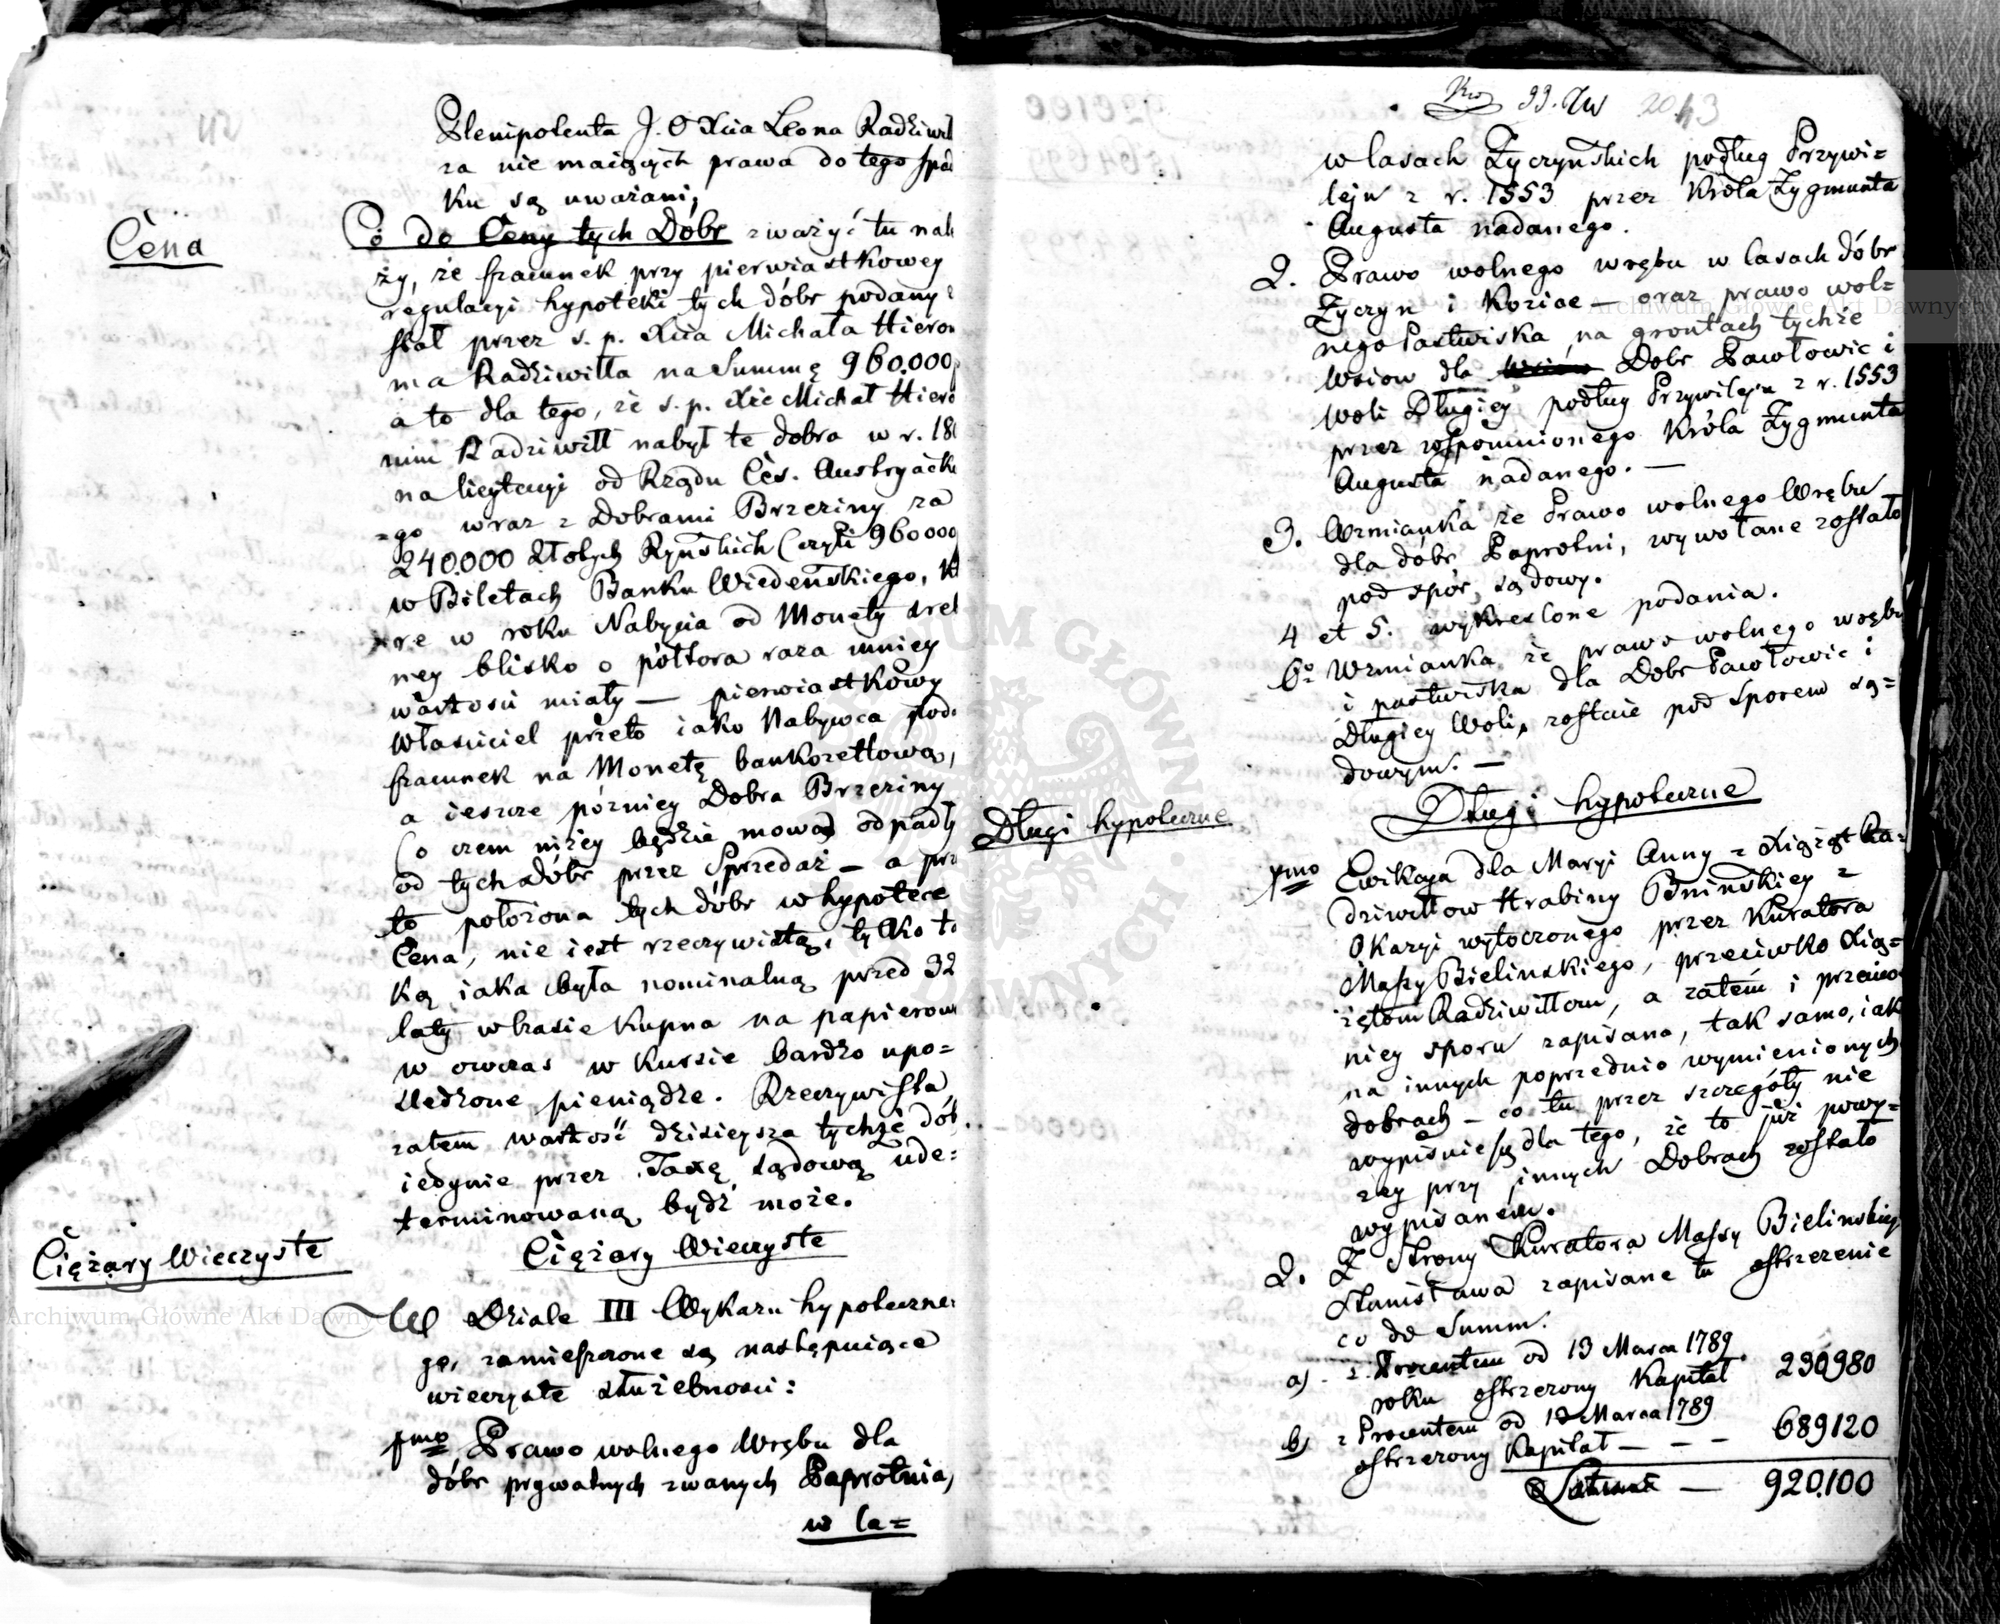 Plenipotenta J. O Xcia Leona Radziwił
ra nie maiących prawa do tego spad
ku są uważani;
Cena
Co do Ceny tych Dóbr zważyć tu nale
ży, że szacunek przy pierwiastkowey
regulacyi hypoteki tych dóbr podany
stał przez s. p. Xcia Michała Hieron
ma Radziwiłła na Summę 960.000
a to dla tego, że s. p. Xże Michał Hiero
nim Radziwiłł nabył te dobra w r. 180
na licytacyi od Rządu Ces. Austryacki
=go wraz z Dobrami Brzeziny za
240.000 Złotych Ryńskich (czyli 960000
w Biletach Banku Wiedeńskiego, Kt
re w roku Nabycia od Monety sreb
ney blisko o półtora raza mniey
wartości miały — pierwiastkowy
Właściciel przeto iako Nabywca pod
szacunek na Monetę bankozetlową,
a ieszcze pózniey Dobra Brzeziny
(o czem niżey będzie mowa) odpadły
od tych dóbr przez Sprzedaż — a prze
to położona tych dóbr w hypotece
Cena, nie iest rzeczywistą, tylko ta
ką iaka była nominalną przed 32
laty w czasie Kupna na papierow
w owczas w Kursie bardzo upo=
śledzone pieniądze. Rzeczywista
zatem wartość dzisieysza tychże dób.
iedynie przez Taxę sądową ude=
terminowaną bydź może.
Ciężary Wieczyste
Ciężary Wieczyste
W Dziale III Wykazu hypoteczne
go, zamieszczone są następuiące
wieczyste służebności:
pmo Prawo wolnego Wrębu dla
dóbr prywatnych zwanych Paprotnia,
w la=
99.
w lasach Życzyńskich podług Przywi=
leju z r. 1553 przez Króla Zygmunta
Augusta nadanego.
2. Prawo wolnego wrębu w lasach dóbr
Życzyn i Kozice — oraz prawo wol=
nego Pastwiska na grontach tychże
Wsiow dla Dobr Pawłowic i
Woli Długiey podług Przywileju z r. 1553
przez wspomnionego Króla Zygmunta
Augusta nadanego. —
3. Wzmianka że Prawo wolnego Wrębu
dla dóbr Paprotni, wywołane zostało
pod spór sądowy.
4 et 5. wykreslone podania.
6o Wzmianka, że prawo wolnego wrębu
i pastwiska dla Dobr Pawłowic i
Długiey Woli, zostaie pod Sporem są=
dowym. —
Długi hypoteczne
Długi hypoteczne
pmo Ewikcya dla Maryi Anny z Xiążąt Ra=
dziwiłłow Hrabiny Bnińskiey z
Okazyi wytoczonego przez Kuratora
Massy Bielinskiego, przeciwko Xią=
żętom Radziwiłłom, a zatém i przeciw
niey sporu zapisana, tak samo, iak
na innych poprzednio wymienionych
dobrach — co tu przez szczegóły nie
wypisuie się dla tego, że to już powy=
żey przy innych Dobrach zostało
wypisaném.
2. Z Strony Kuratora Massy Bielinskiey
Stanisława zapisane tu ostrzezenie
co do Summ.
a) z Procentem od 13 Marca 1789
roku ostrzezony Kapitał 230980
b) z Procentem od 13 Marca 1789
ostrzezony Kapitał — — — 689120
Latus — 920.100
Archiwum Główne Akt Dawnych
Archiwum Główne Akt Dawnych
ARCHIWUM GŁÓWNE AKT DAWNYCH